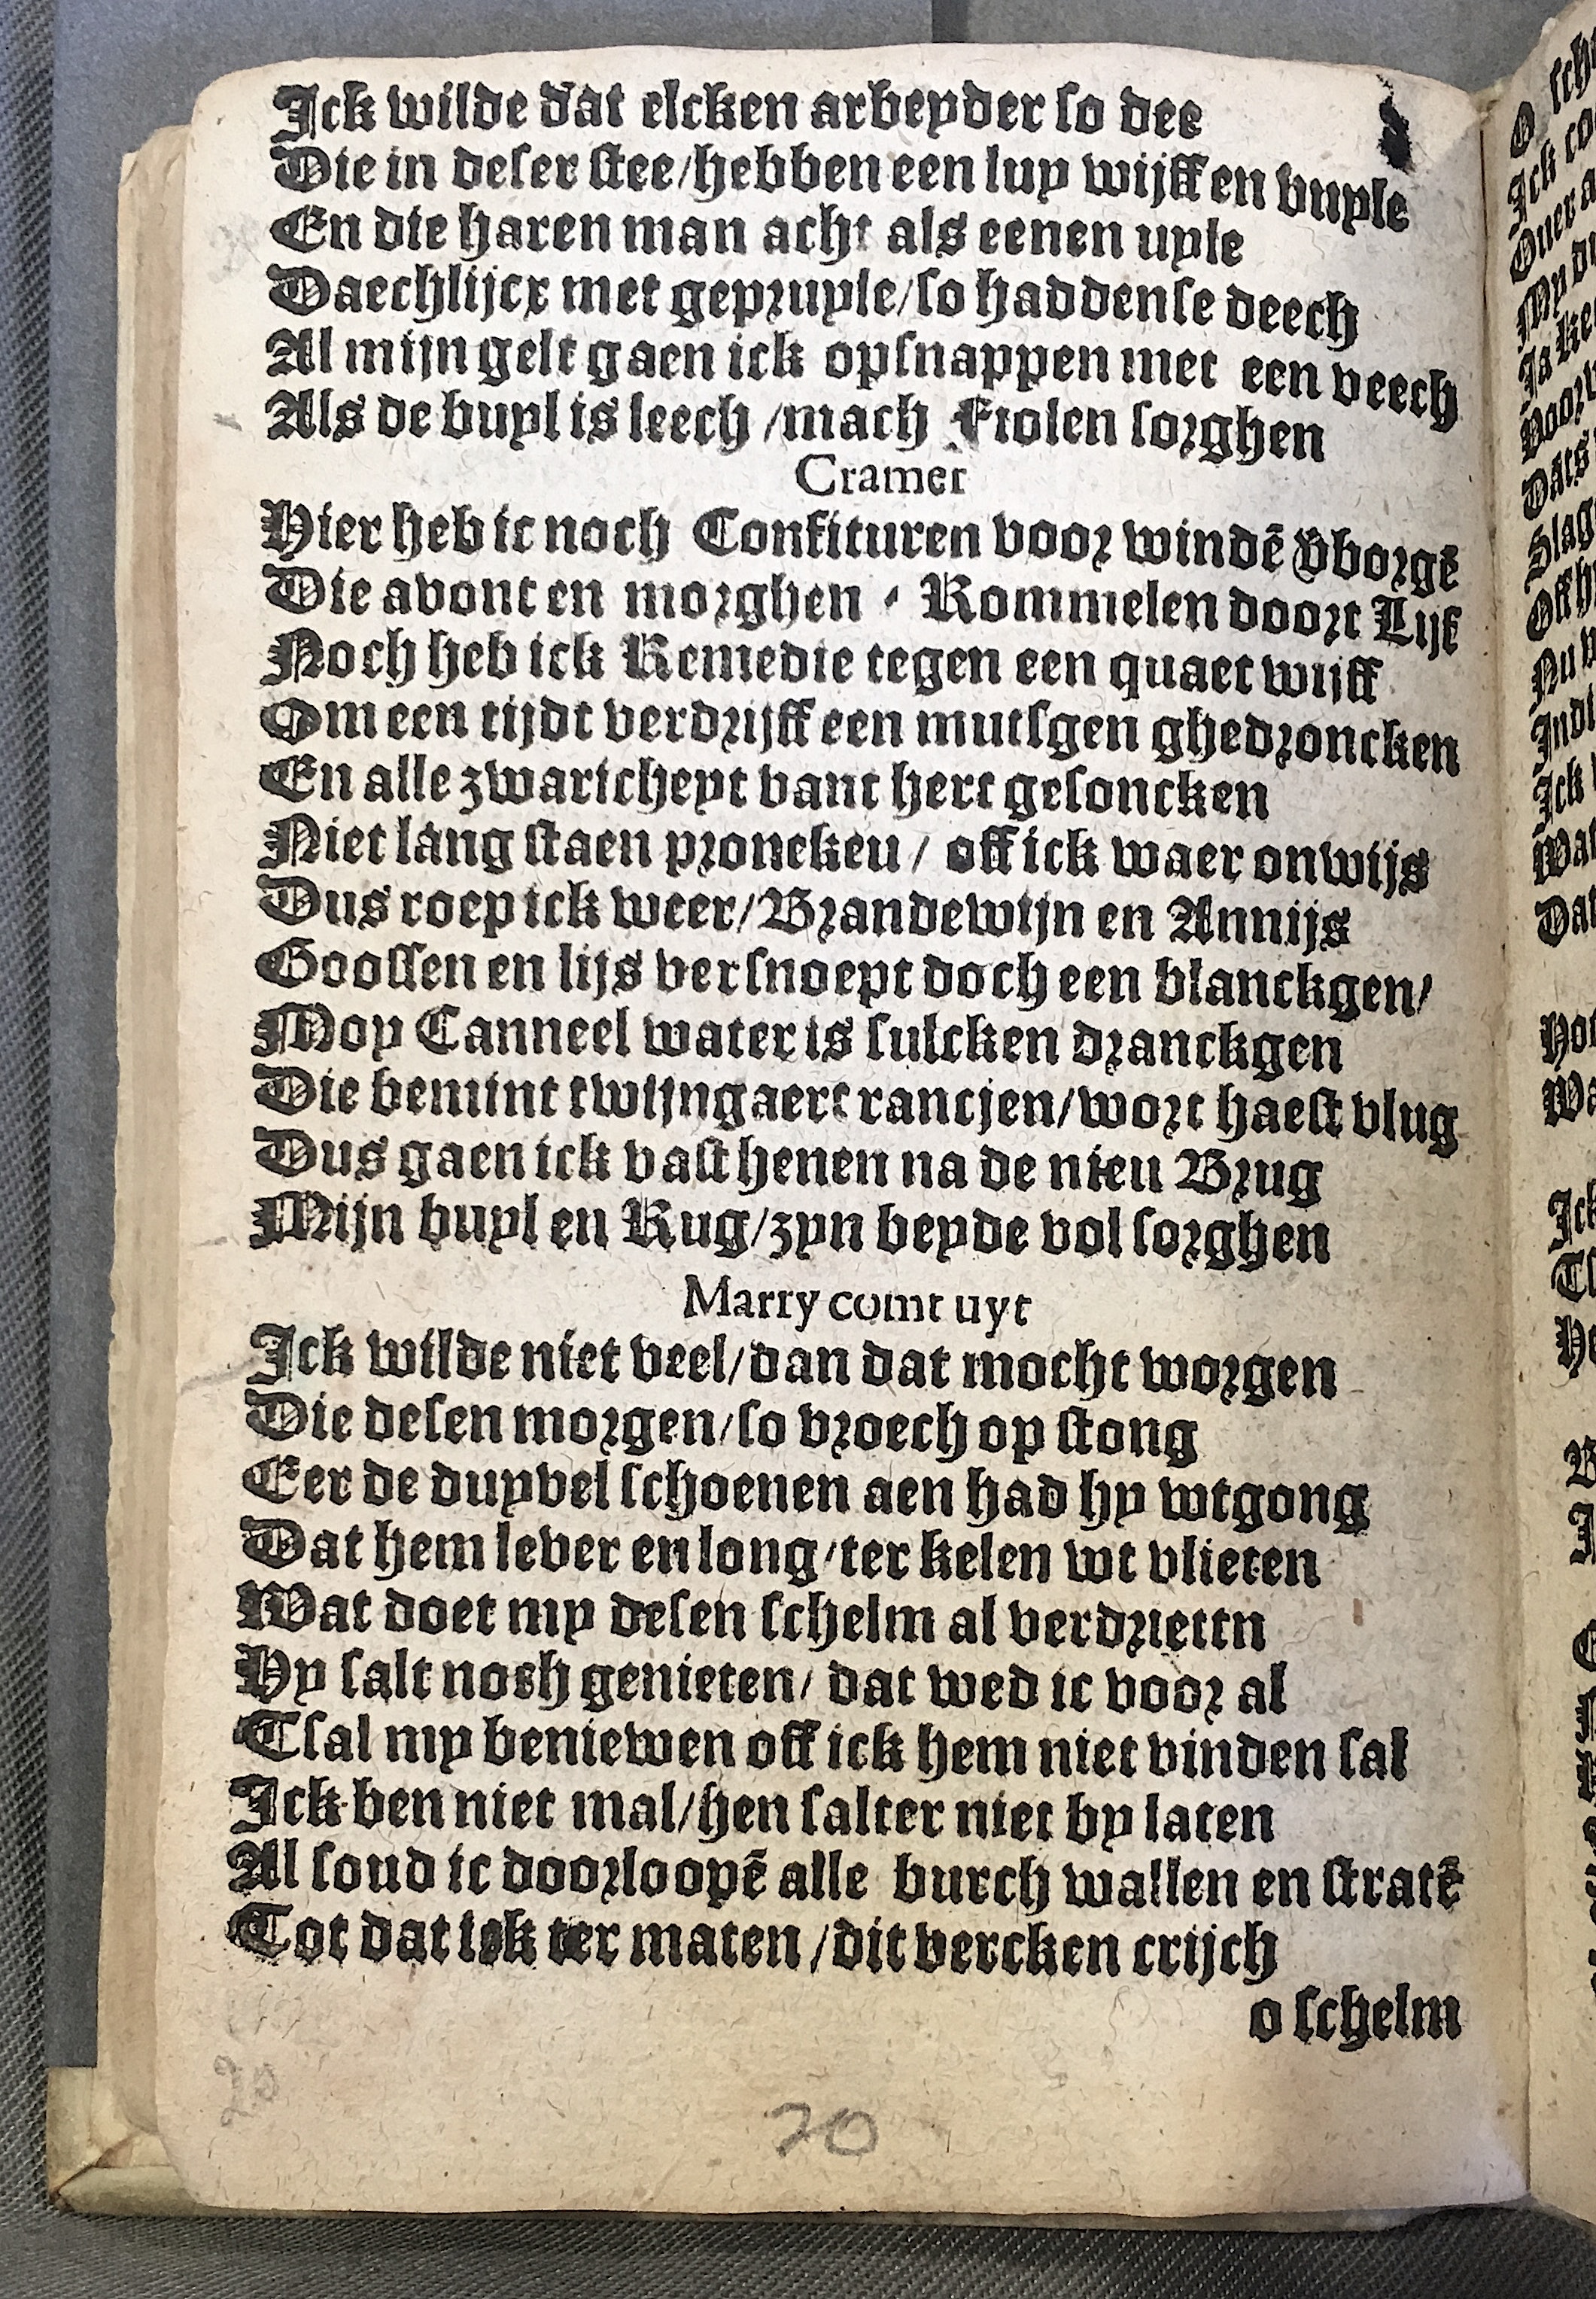 Ick wilde dat elcken arbeyder so dee
Die in deser stee/hebben een luy wijff en vuyle
En die haren man acht als eenen uyle
Daechlijcx met gepruyle/so haddense deech
Al mijn gelt gaen ick opsnappen met een veech
Als de buyl is leech /mach Fiolen sorghen
Cramer
Hier heb ic noch Confituren voor windē v̄borgē
Die avont en morghen / Rommelen doort Lijf
Noch heb ick Remedie tegen een quaet wijff
Om een tijdt verdrijff een mutsgen ghedroncken
En alle zwaricheyt vant hert gesoncken
Niet lang staen pronckeu / off ick waer onwijs
Dus roep ick weer/Brandewijn en Annijs
Goossen en lijs versnoept doch een blanckgen/
Moy Canneel water is sulcken dranckgen
Die bemint twijngaert rancjen/wort haest vlug
Dus gaen ick vast henen na de nieu Brug
Mijn buyl en Rug/zyn beyde vol sorghen
Marry comt uyt
Ick wilde niet veel/dan dat mocht worgen
Die desen morgen/so vroech op stong
Eer de duyvel schoenen aen had hy wtgong
Dat hem lever en long/ter kelen wt vlieten
Wat doet my desen schelm al verdriettn
Hy salt nosh genieten/ dat wed ic voor al
Tsal my beniewen off ick hem niet vinden sal
Ick ben niet mal/hen salter niet by laten
Al soud ic doorloopē alle burch wallen en stratē
Tot dat ick ter maten /dit vercken crijch
o schelm
20